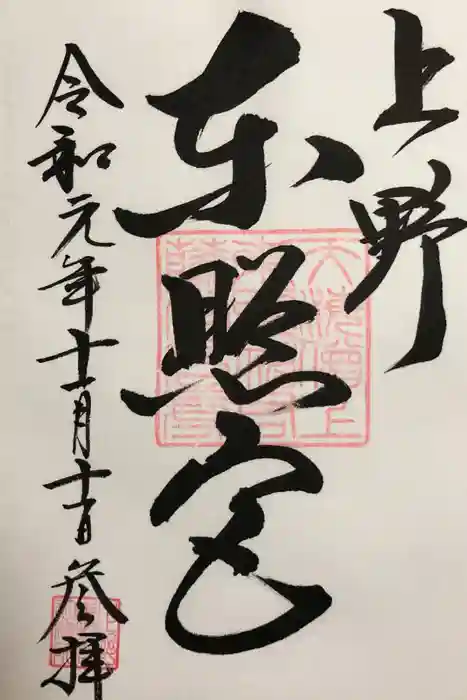 上野
東照宮
令和元年十一月十一日 参拝